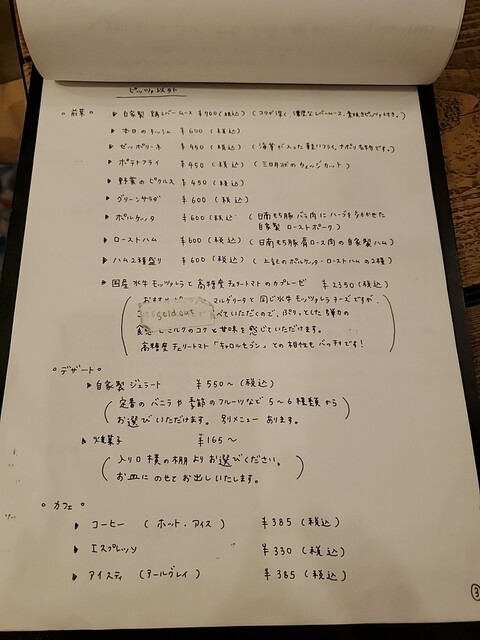 ピッツァ以外
。前菜。
▶ 自家製 鶏レバームース ¥900(税込) (コクが深く、濃厚なレバームース、素焼きピッツァ付き。)
▶ 本日のキッシュ ¥600(税込)
▶ ゼッポリーネ ¥450(税込) (海苔が入った軽いフライ。ナポリ名物です。)
▶ ポテトフライ ¥450(税込) (三日月状のウェッジカット)
▶ 野菜のピクルス ¥450(税込)
▶ グリーンサラダ ¥600(税込)
▶ ポルケッタ ¥600(税込) (日南もち豚バラ肉にハーブをきかせた
自家製 ローストポーク)
▶ ローストハム ¥600(税込) (日南もち豚肩ロース肉の自家製ハム)
▶ ハム2種盛り ¥600(税込) (上記のポルケッタ・ローストハムの2種)
▶ 国産 水牛モッツァレラと高糖度チェリートマトのカプレーゼ ¥2350(税込)
マルゲリータと同じ水牛モッツァレラチーズですが、
sold out べていただくので、ぷりっとした弾力の
食感とミルクのコクと甘味を感じていただけます。
高糖度チェリートマト「キャロルセブン」との相性もバッチリです!
。デザート。
▶ 自家製 ジェラート ¥550〜(税込)
(定番のバニラや季節のフルーツなど5〜6種類から
お選びいただけます。別メニューあります。)
▶ 焼菓子 ¥165〜
(入り口横の棚よりお選びください。
お皿にのせてお出しいたします。)
。カフェ。
▶ コーヒー (ホット・アイス) ¥385(税込)
▶ エスプレッソ ¥330(税込)
▶ アイスティ (アールグレイ) ¥385(税込)
③